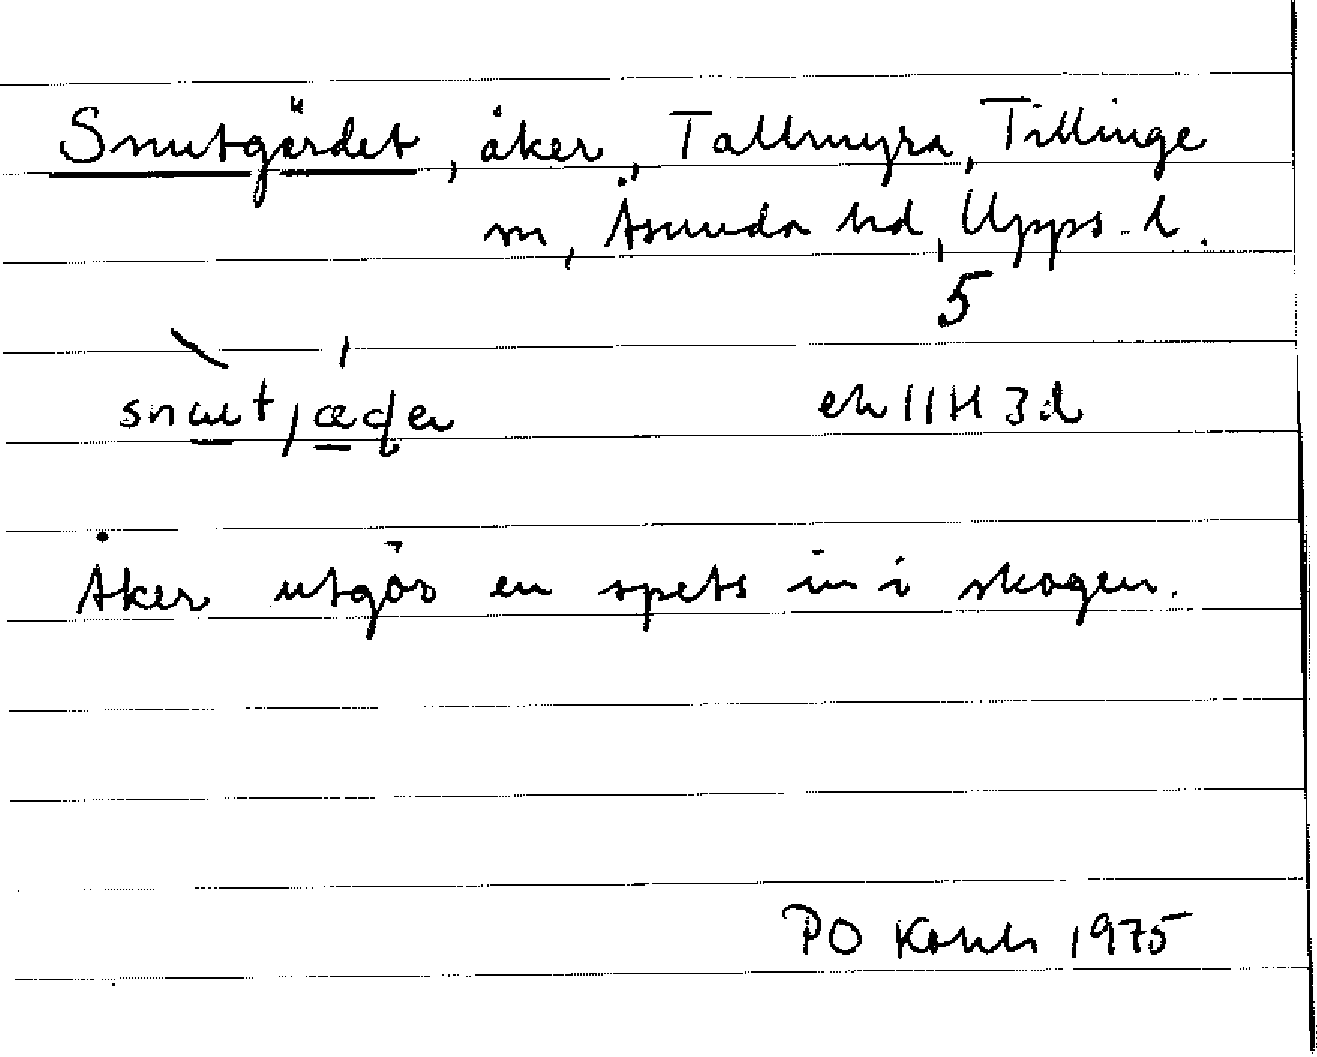 Snutgärdet, åker, Tallmyra, Tillinge
sn, Åsunda hd, Upps. l.
5
ek 11H 3d
Åker utgör en spets in i skogen.
PO 1975